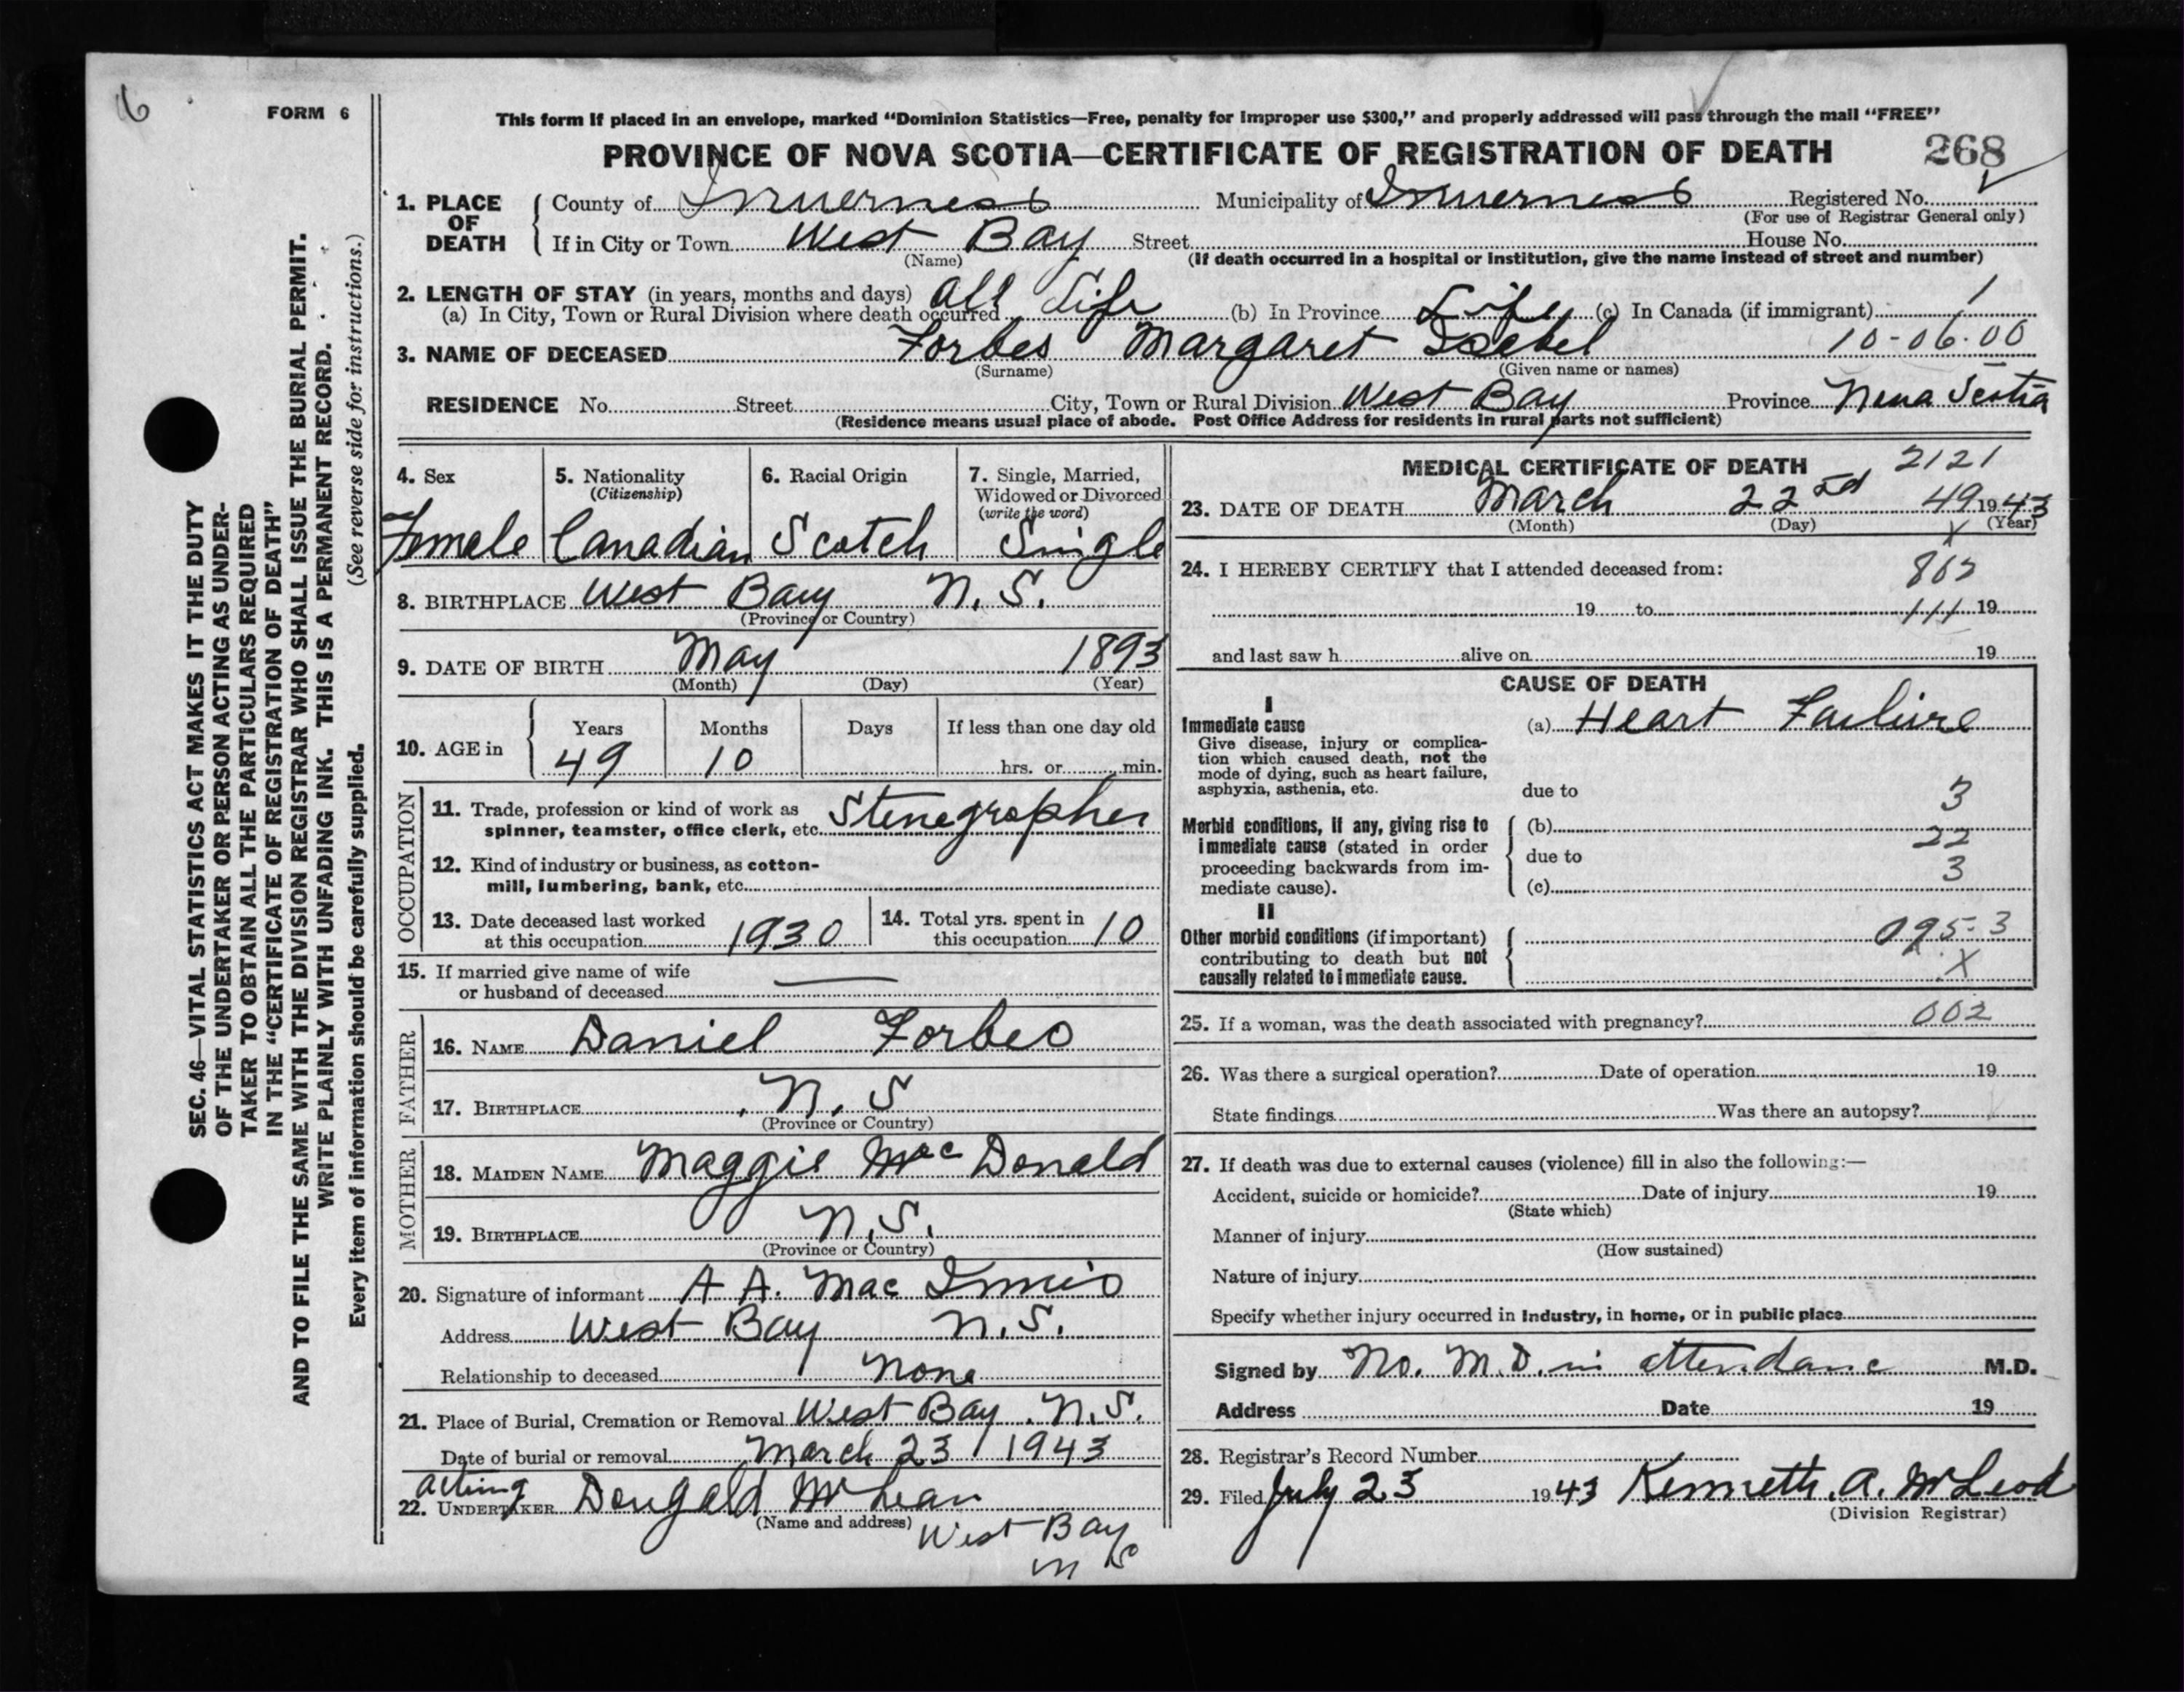 6
FORM 6
SEC. 46—VITAL STATISTICS ACT MAKES IT THE DUTY
OF THE UNDERTAKER OR PERSON ACTING AS UNDER-
TAKER TO OBTAIN ALL THE PARTICULARS REQUIRED
IN THE "CERTIFICATE OF REGISTRATION OF DEATH"
AND TO FILE THE SAME WITH THE DIVISION REGISTRAR WHO SHALL ISSUE THE BURIAL PERMIT.
WRITE PLAINLY WITH UNFADING INK. THIS IS A PERMANENT RECORD.
Every item of information should be carefully supplied. (See reverse side for instructions.)
This form if placed in an envelope, marked "Dominion Statistics—Free, penalty for improper use $300," and properly addressed will pass through the mail "FREE"
PROVINCE OF NOVA SCOTIA—CERTIFICATE OF REGISTRATION OF DEATH 268
1. PLACE OF DEATH County of Inverness Municipality of Inverness Registered No.
(For use of Registrar General only)
If in City or Town West Bay Street House No.
(Name) (If death occurred in a hospital or institution, give the name instead of street and number)
2. LENGTH OF STAY (in years, months and days)
(a) In City, Town or Rural Division where death occurred All Life (b) In Province Life (c) In Canada (if immigrant) 1
3. NAME OF DECEASED Forbes Margaret Isebel 10-06-00
(Surname) (Given name or names)
RESIDENCE No. Street City, Town or Rural Division West Bay Province Nova Scotia
(Residence means usual place of abode. Post Office Address for residents in rural parts not sufficient)
4. Sex Female
5. Nationality (Citizenship) Canadian
6. Racial Origin Scotch
7. Single, Married, Widowed or Divorced (write the word) Single
8. BIRTHPLACE West Bay N. S.
(Province or Country)
9. DATE OF BIRTH May 1893
(Month) (Day) (Year)
10. AGE in Years 49 Months 10 Days If less than one day old hrs. or min.
OCCUPATION
11. Trade, profession or kind of work as spinner, teamster, office clerk, etc. Stenographer
12. Kind of industry or business, as cotton-mill, lumbering, bank, etc.
13. Date deceased last worked at this occupation 1930
14. Total yrs. spent in this occupation 10
15. If married give name of wife or husband of deceased —
FATHER
16. NAME Daniel Forbes
17. BIRTHPLACE N. S
(Province or Country)
MOTHER
18. MAIDEN NAME Maggie MacDonald
19. BIRTHPLACE N.S.
(Province or Country)
20. Signature of informant A A. MacInnis
Address West Bay N.S.
Relationship to deceased None
21. Place of Burial, Cremation or Removal West Bay. N.S.
Date of burial or removal March 23 1943
acting
22. UNDERTAKER Dougald McLean
(Name and address) West Bay
N S
MEDICAL CERTIFICATE OF DEATH 2121
23. DATE OF DEATH March 22nd 49 1943
(Month) (Day) X (Year)
24. I HEREBY CERTIFY that I attended deceased from:
19 to 111 19
and last saw h alive on 19
CAUSE OF DEATH
I
Immediate cause (a) Heart Failure
Give disease, injury or complica-
tion which caused death, not the
mode of dying, such as heart failure,
asphyxia, asthenia, etc. due to 3
Morbid conditions, if any, giving rise to (b)
immediate cause (stated in order due to 22
proceeding backwards from im- 3
mediate cause). (c)
II
Other morbid conditions (if important) 095-3
contributing to death but not
causally related to immediate cause. X
25. If a woman, was the death associated with pregnancy? 002
26. Was there a surgical operation? Date of operation 19
State findings Was there an autopsy?
27. If death was due to external causes (violence) fill in also the following:—
Accident, suicide or homicide? Date of injury 19
(State which)
Manner of injury
(How sustained)
Nature of injury
Specify whether injury occurred in industry, in home, or in public place
Signed by No. M.D. in attendance M.D.
Address Date 19
28. Registrar's Record Number
29. Filed July 23 1943 Kenneth. A. McLeod
(Division Registrar)